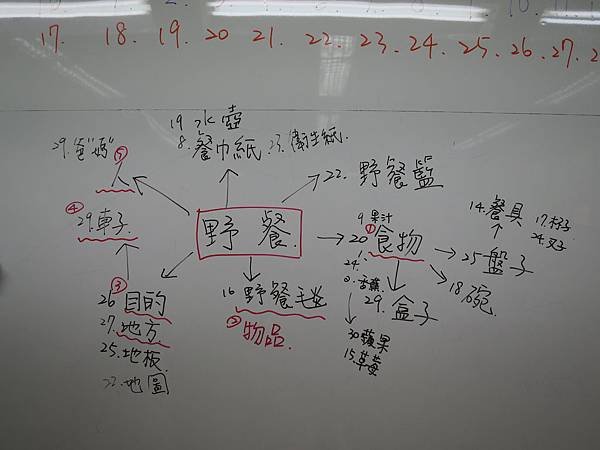 17. 18. 19. 20 21. 22. 23. 24. 25. 26. 27. 2
19 水壺
8. 餐巾紙 23. 衛生紙.
29. 爸"媽"
⑤
人
22. 野餐籃
④
29. 車子.
野餐.
9 果汁
①
20 食物
14. 餐具
17. 杯子
24. 叉子
25 盤子
18. 碗.
24.
8. 香蕉
29. 盒子
30 蘋果
15. 草莓
16 野餐毛毯
② 物品.
③
26 目的
27. 地方
25. 地板
22. 地圖